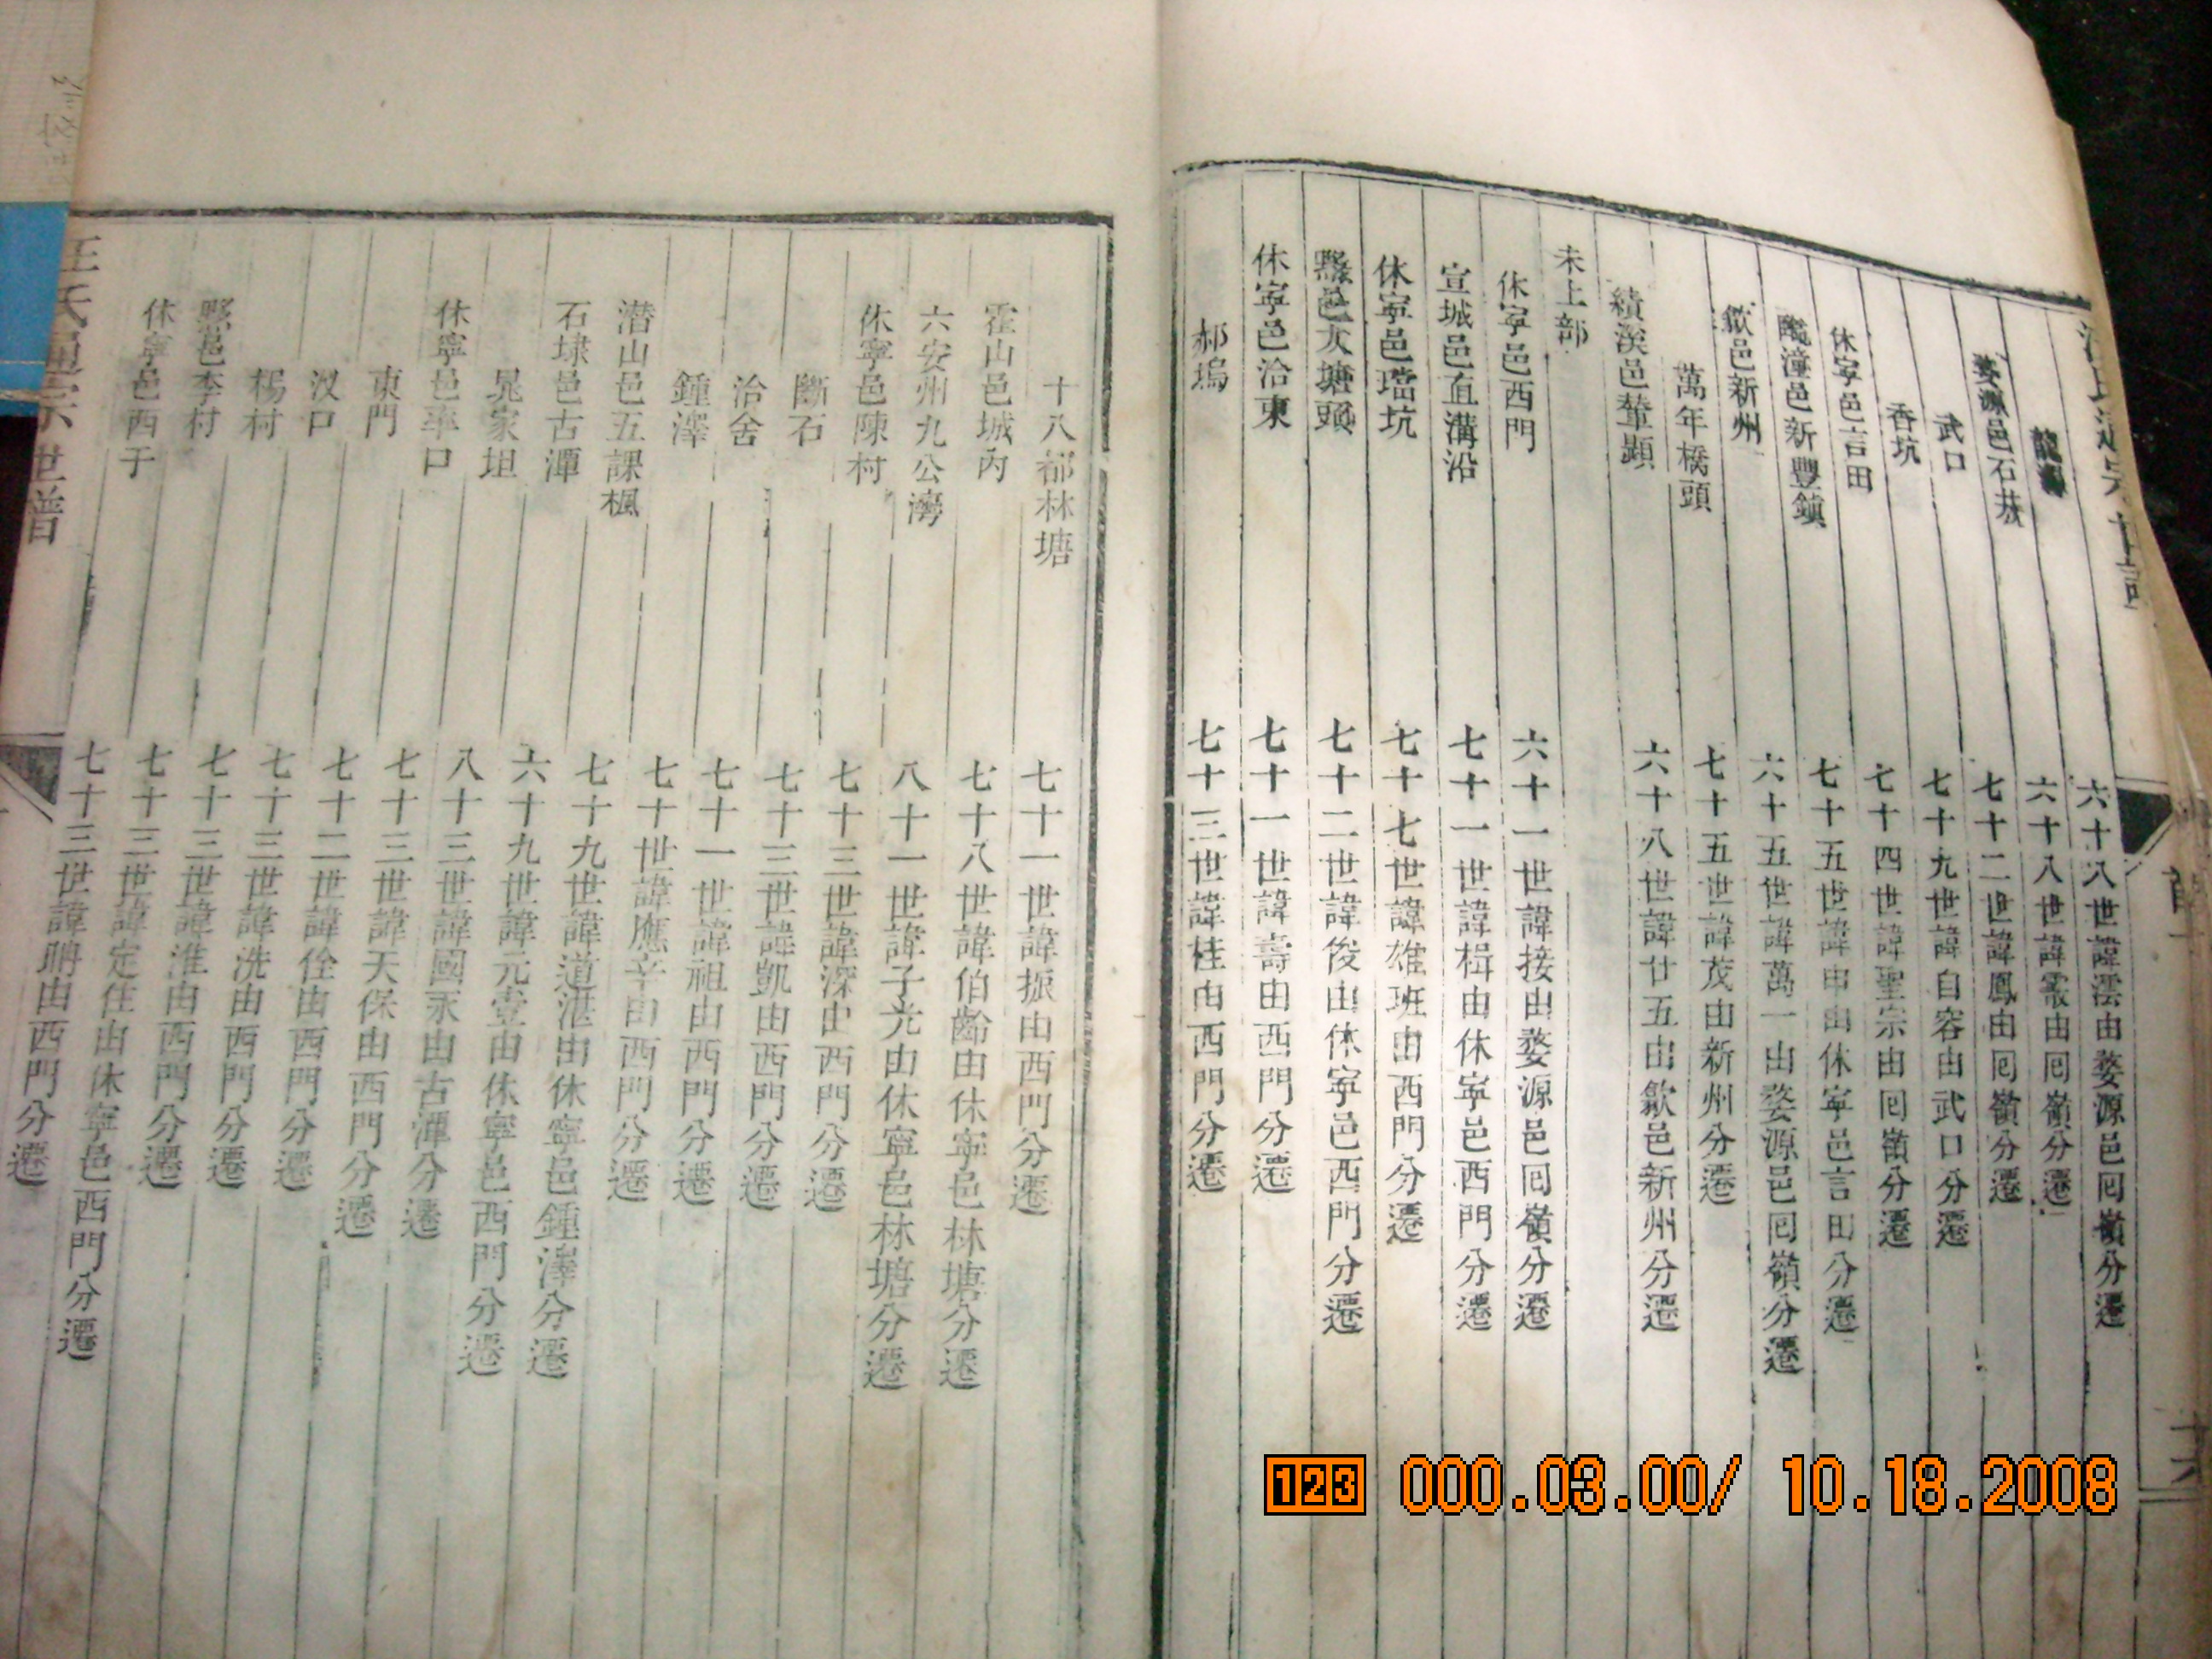 汪氏通宗世譜
龍灣 六十八世諱澐由婺源邑囘嶺分遷
婺源邑石井 六十八世諱霖由囘嶺分遷
武口 七十二世諱鳳由囘嶺分遷
香坑 七十九世諱自容由武口分遷
休寧邑言田 七十四世諱聖宗由囘嶺分遷
潼邑新豐鎮 七十五世諱申由休寧邑言田分遷
歙邑新州 六十五世諱萬一由婺源邑囘嶺分遷
萬年橋頭 七十五世諱茂由新州分遷
績溪邑輋顯 六十八世諱廿五由歙邑新州分遷
未上部
休寧邑西門 六十一世諱接由婺源邑囘嶺分遷
宣城邑直溝沿 七十一世諱楫由休寧邑西門分遷
休寧邑璫坑 七十七世諱雄班由西門分遷
黟邑大塘頭 七十二世諱俊由休寧邑西門分遷
休寧邑洽東 七十一世諱壽由西門分遷
郝塢 七十三世諱桂由西門分遷
十八都林塘 七十一世諱振由西門分遷
霍山邑城內 七十八世諱伯齡由休寧邑林塘分遷
六安州九公灣 八十一世諱子光由休寧邑林塘分遷
休寧邑陳村 七十三世諱深由西門分遷
斷石 七十三世諱凱由西門分遷
洽舍 七十一世諱祖由西門分遷
鍾澤 七十世諱應辛由西門分遷
潛山邑五課楓 七十九世諱道湛由休寧邑鍾澤分遷
石埭邑古潭 六十九世諱元壹由休寧邑西門分遷
晁家坦 八十三世諱國永由古潭分遷
休寧邑率口 七十三世諱天保由西門分遷
東門 七十二世諱佺由西門分遷
汊口 七十三世諱洗由西門分遷
楊村 七十三世諱淮由西門分遷
黟邑李村 七十三世諱定住由休寧邑西門分遷
休寧邑西干 七十三世諱聃由西門分遷
汪氏通宗世譜
123 000.03.00/ 10.18.2008